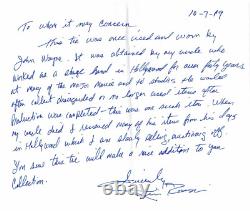 10-7-89
To whom it may concern
This tie was once used and worn by
John Wayne. It was obtained by my uncle who
worked as a stage hand in Hollywood for over forty years
at many of the motor and studios. He would
often collect disregarded or no longer used items after
Production was completed - this was one such item. When
my uncle died I received many of his item from his days
in Hollywood which I am slowly selling, auctioning off.
I'm sure this tie will make a nice addition to your
Collection.
Sincerely